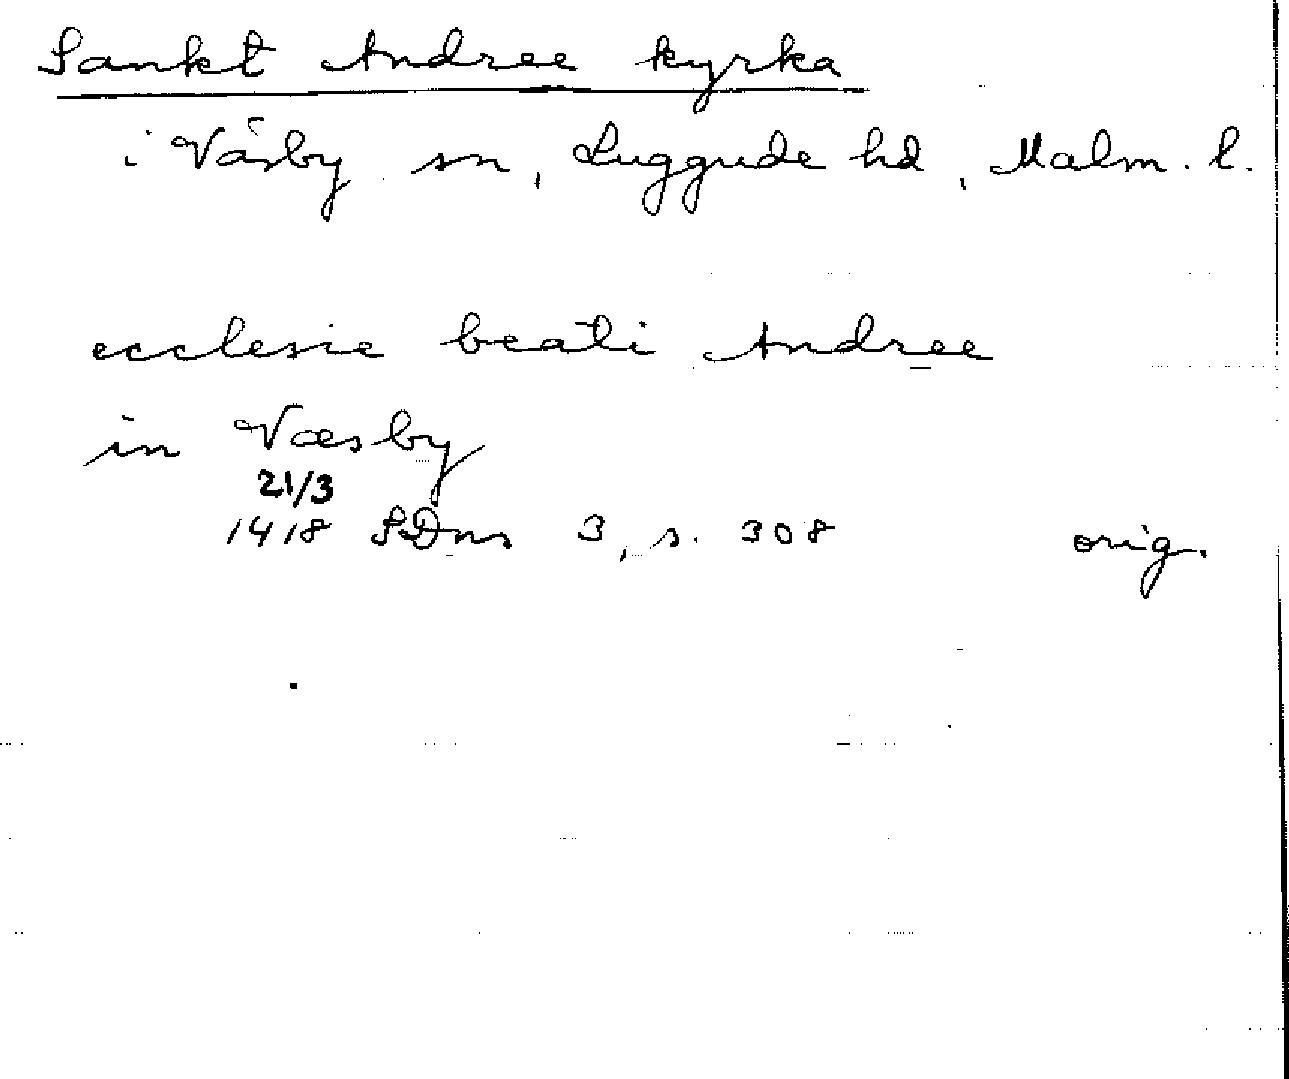 Sankt Andree kyrka
i Väsby sn, Luggude hd, Malm. l.
ecclesie beati Andree
in Væsby
21/3
1418 SDns 3, s. 308 orig.